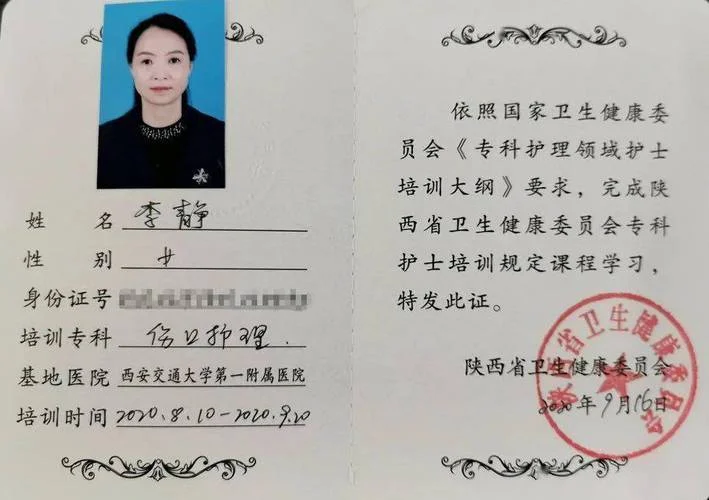 姓名 李静
性别 女
身份证号
培训专科 伤口护理.
基地医院 西安交通大学第一附属医院
培训时间 2020.8.10-2020.9.20
依照国家卫生健康委
员会《专科护理领域护士
培训大纲》要求，完成陕
西省卫生健康委员会专科
护士培训规定课程学习，
特发此证。
陕西省卫生健康委员会
2020年9月16日
陕西省卫生健康委员会